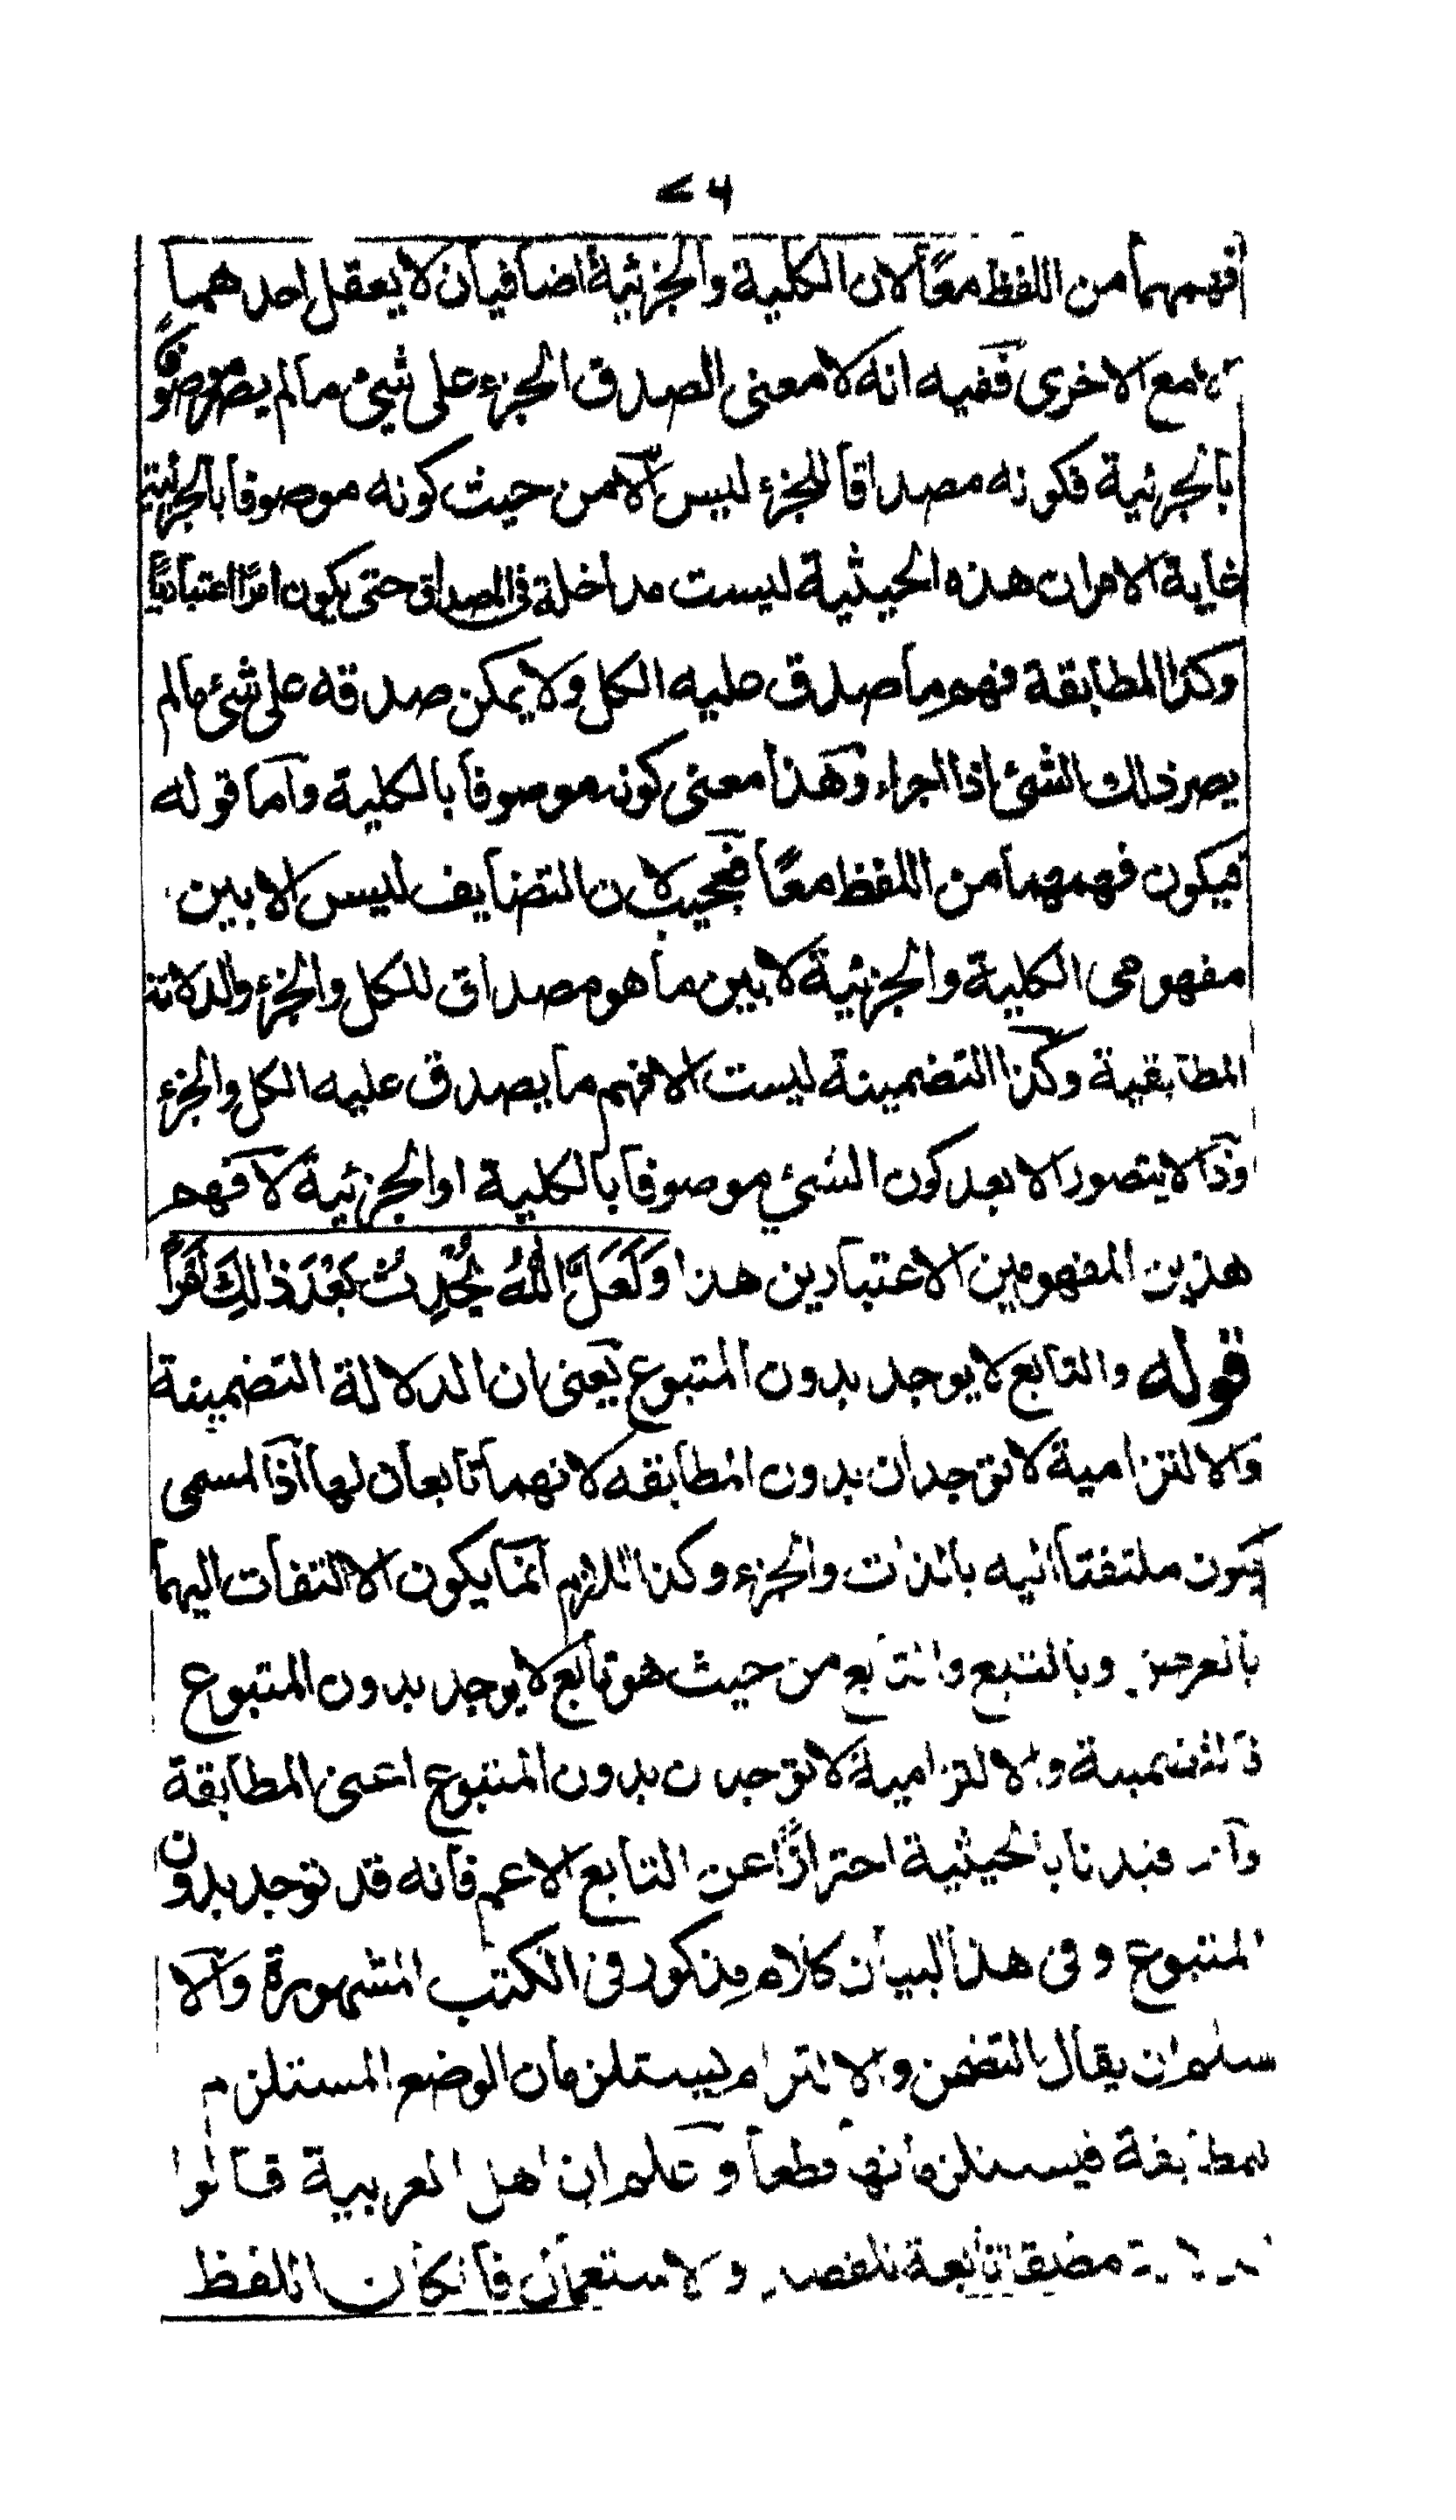 ٧٦
فهمهما من اللفظ معًا لان الكلية والجزئية اضافيان لا يعقل احدهما
الا مع الاخرى ففيه انه لا معنى لصدق الجزء على شيء ما لم يصر موصوفًا
بالجزئية فكونه مصداقا للجزء ليس الا من حيث كونه موصوفا بالجزئية
غاية الامر ان هذه الحيثية ليست مداخلة في المصداق حتى يكون امرًا اعتباريًا
وكذا المطابقة فهم ما صدق عليه الكل ولا يمكن صدقه على شئ ما لم
يصر ذلك الشئ اذا اجزاء وهذا معنى كونه موصوفا بالكلية واما قوله
فيكون فهمهما من اللفظ معًا فعجيب لان التضايف ليس الا بين
مفهومى الكلية والجزئية لا بين ما هو مصداق للكل والجزء والدلالة
المطابقية وكذا التضمينة ليست الا فهم ما يصدق عليه الكل والجزء
وذا لا يتصور الا بعد كون الشئ موصوفا بالكلية او الجزئية لا فهم
هذين المفهومين الاعتباريين هذا وَلَعَلَّ اللّٰهُ يُحْدِثُ بَعْدَ ذَالِكَ اَمْرًا
قوله والتابع لا يوجد بدون المتبوع يعنى ان الدلالة التضمينة
والالتزامية لا توجدان بدون المطابقه لانهما تابعان لها اذا المسمى
يكون ملتفتا اليه بالذات والجزء وكذا اللازم انما يكون الالتفات اليهما
بالعرض وبالتبع والتابع من حيث هو تابع لا يوجد بدون المتبوع
فالتضمينة والالتزامية لا توجدان بدون المتبوع اعنى المطابقة
وانما قيدنا بالحيثية احترازًا عن التابع الاعم فانه قد توجد بدون
المتبوع وفى هذا البيان كلام مذكور فى الكتب المشهورة والا
سلم ان يقال التضمن والالتزام يستلزمان الوضع المستلزم
للمطابقة فيستلزمانها قطعا واعلم ان اهل العربية قالوا
الدلالة مطلقا تابعة للقصد والاستعمال فان كان اللفظ